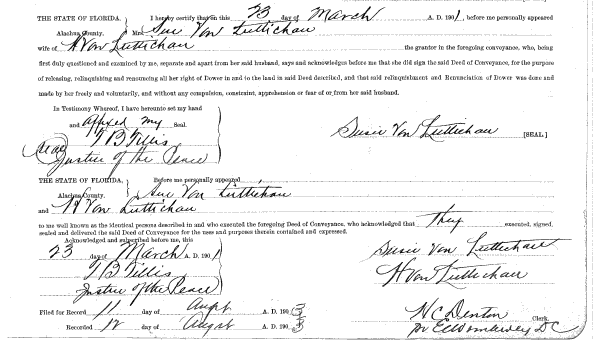 THE STATE OF FLORIDA, I hereby certify that on this 23 day of March A. D. 1901, before me personally appeared
Alachua County. Mrs Sue Von Luttichau
wife of H Von Luttichau the grantor in the foregoing conveyance, who, being
first duly questioned and examined by me, separate and apart from her said husband, says and acknowledges before me that she did sign the said Deed of Conveyance, for the purpose
of releasing, relinquishing and renouncing all her right of Dower in and to the land in said Deed described, and that said relinquishment and Renunciation of Dower was done and
made by her freely and voluntarily, and without any compulsion, constraint, apprehension or fear of or from her said husband.
In Testimony Whereof, I have hereunto set my hand
and affixed my Seal.
T B Tillis Susie Von Luttichau [SEAL]
Seal
Justice of the Peace
THE STATE OF FLORIDA, Before me personally appeared
Alachua County. Sue Von Luttichau
and H Von Luttichau
to me well known as the identical persons described in and who executed the foregoing Deed of Conveyance, who acknowledged that They executed, signed,
sealed and delivered the said Deed of Conveyance for the uses and purposes therein contained and expressed.
Acknowledged and subscribed before me, this
23 day of March A. D. 1901 Susie Von Luttichau
T B Tillis H Von Luttichau
Justice of the Peace
Filed for Record 11 day of Augt A. D. 190
H C Denton Clerk.
Recorded 12 day of August A. D. 190
D C